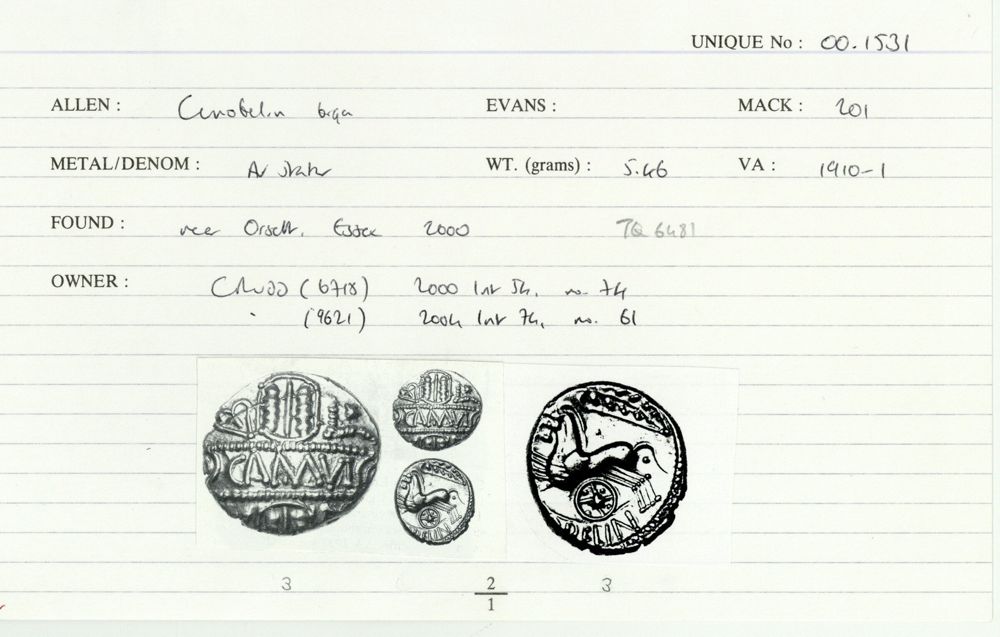 UNIQUE No : 00.1531
ALLEN : Cunobelin biga EVANS : MACK : 201
METAL/DENOM : AV stater WT. (grams) : 5.46 VA : 1910-1
FOUND : near Orsett, Essex 2000 TQ 6481
OWNER : CRUDD (6718) 2000 List 54, no. 74
" (9621) 2004 List 74, no. 61
CAMVI
CAMVI
3 2 3
1